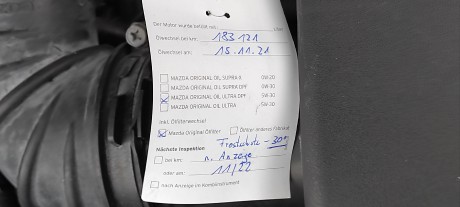 Der Motor wurde befüllt mit: Liter
Gewechselt bei km: 183 121
Gewechselt am: 15.11.21
MAZDA ORIGINAL OIL SUPRA-X 0W-20
MAZDA ORIGINAL OIL SUPRA DPF 0W-30
MAZDA ORIGINAL OIL ULTRA DPF 5W-30
MAZDA ORIGINAL OIL ULTRA 5W-30
inkl. Ölfilterwechsel
Mazda Original Ölfilter Ölfilter anderes Fabrikat
Nächste Inspektion -30°
bei km: n. Anzeige
oder am: 11/22
nach Anzeige im Kombiinstrument